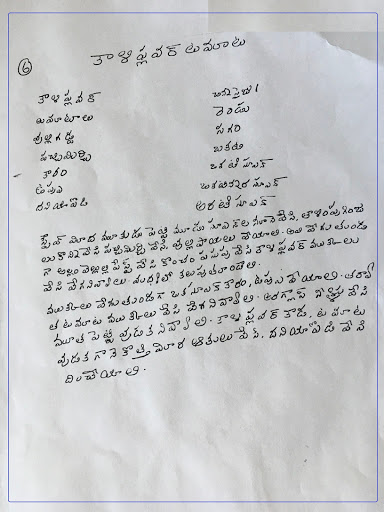 6
కాలిప్లవర్ టమాట
కాలిప్లవర్
టమాటాలు రెండు
ఉల్లిగడ్డ సగం
పచ్చిమిర్చి ఒకటి
కారం ఒకటి స్పూన్
ఉప్పు ఒకటిన్నర స్పూన్
దనియాపొడి అరటీ స్పూన్
స్టవ్ మీద మూకుడు పెట్టి మూడు స్పూన్‌ల నూనె వేసి, తాళింపు గింజ
లు వేసి పచ్చిమిర్చి వేసి, ఉల్లిపాయలు వేయాలి. అవి వేగుతుండ
గా అల్లం వెల్లుల్లి పేస్ట్ వేసి కొంచెం పసుపు వేసి కాలిప్లవర్ ముక్కలు
వేసి వేగనివ్వాలి. మధ్యలో కలుపుతుండాలి.
ముక్కలు వేగుతుండగా ఒక స్పూన్ కారం, ఉప్పు వేయాలి. తరవా
త టమాట ముక్కలు వేసి వేగనివ్వాలి. అరగ్లాస్ నీళ్ళు వేసి
మూత పెట్టి వుడుకనివ్వాలి. కాలిప్లవర్ కాడ, టమాట
వుడుకగానే కొత్తిమీర ఆకులు వేసి, దనియాపొడి వేసి
దించేయాలి.